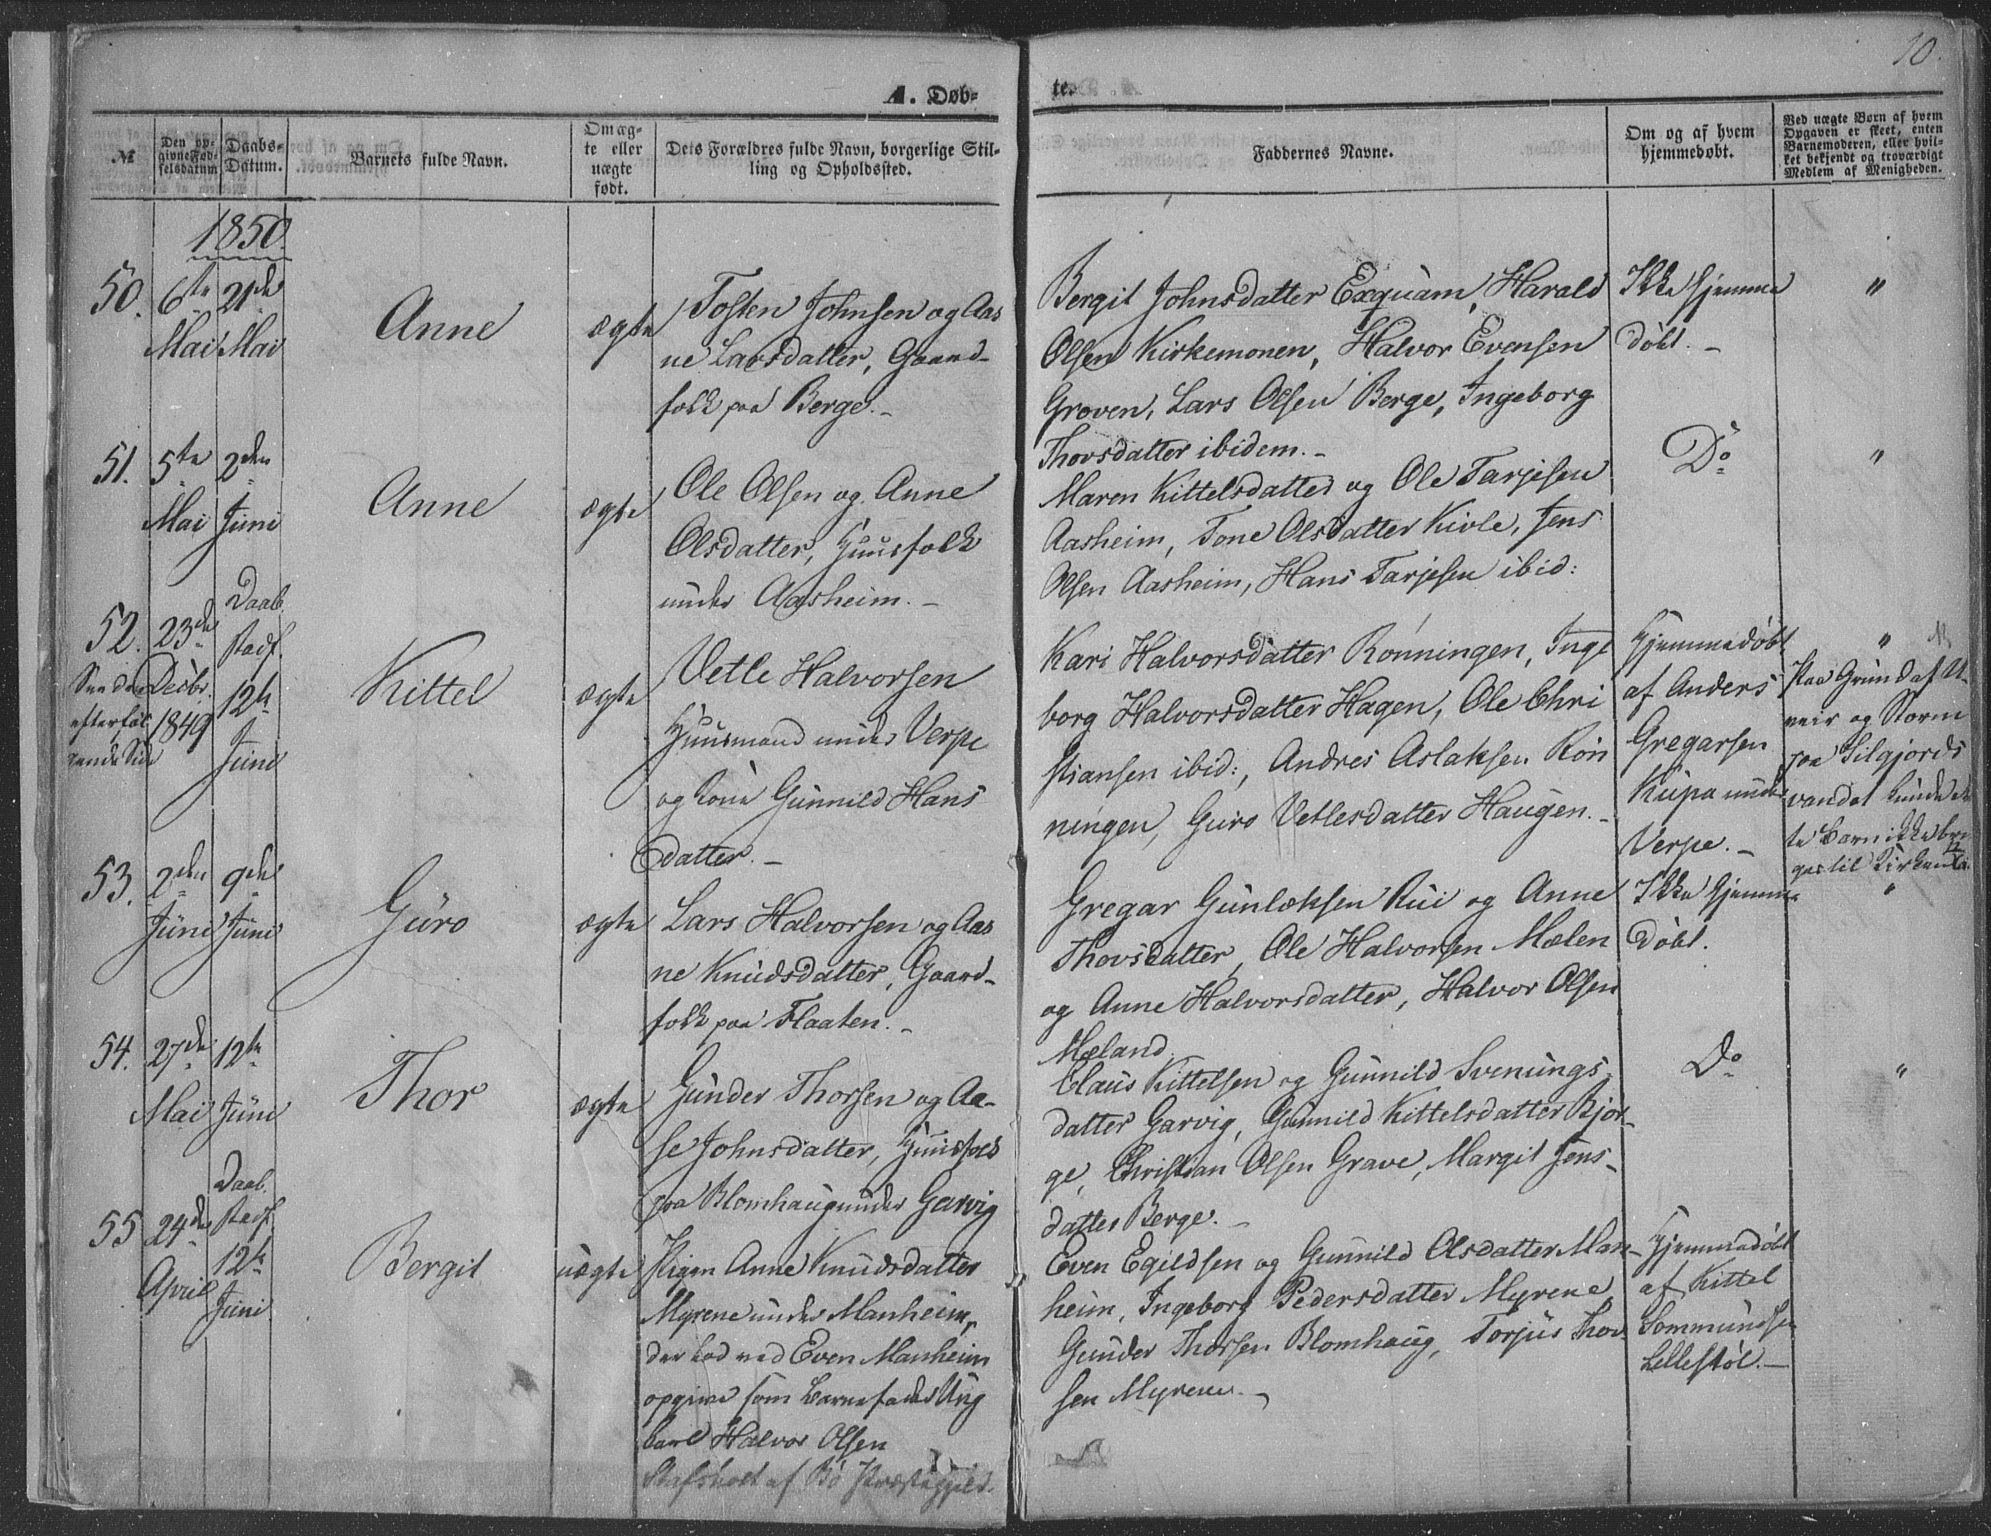 10.
A. Døb-
te.
№
Den opgivne Fødselsdatum
Daabs-Datum.
Barnets fulde Navn.
Om ægte eller uægte født.
Dets Forældres fulde Navn, borgerlige Stilling og Opholdssted.
Faddernes Navne.
Om og af hvem hjemmedøbt.
Ved uægte Børn af hvem Opgaven er skeet, enten Barnemoderen, eller hvilket bekjendt og troværdigt Medlem af Menigheden.
1850.
50.
6te
Mai
21de
Mai
Anne
ægte
Tosten Johnsen og Aas
ne Larsdatter, Gaard-
folk paa Berge.-
Bergit Johnsdatter Exquam, Harald
Olsen Kirkemonen, Halvor Evensen
Groven, Lars Olsen Berge, Ingeborg
Thorsdatter ibidem.-
Ikke hjemme
døbt. -
"
51.
5te
Mai
2den
Juni
Anne
ægte
Ole Olsen og Anne
Olsdatter, Huusfolk
under Aasheim. -
Maren Kittelsdatter og Ole Tarjesen
Aasheim, Tone Olsdatter Kivle, Jens
Olsen Aasheim, Hans Tarjesen ibid:
Do
"
52.
23de
Decbr.
1849
See den
efterføl
gende Side
Daab.
stadf.
12te
Juni
Kittel
ægte
Vetle Halvorsen
Huusmand under Verpe
og Kone Gunnild Hans
datter. -
Kari Halvorsdatter Rønningen, Inge
borg Halvorsdatter Hagen, Ole Chri
stiansen ibid:, Andres Aslaksen Røn
ningen, Guro Vetlesdatter Haugen.-
Hjemmedøbt
af Anders
Gregarsen
Kupa under
Verpe. -
"
Paa Grund af U-
veir og Storm
paa Silgjords
vandet kunde det
te Barn ikke brin
ges til Kirken
53.
2den
Juni
9de
Juni
Guro
ægte
Lars Halvorsen og Aas
ne Knudsdatter, Gaard-
folk paa Flaaten.-
Gregar Gunlæksen Rui og Anne
Thorsdatter, Ole Halvorsen Mælen
og Anne Halvorsdatter, Halvor Olsen
Mæland.
Ikke hjemme
døbt.
"
54.
27de
Mai
12te
Juni
Thor
ægte
Gunder Thorsen og Aa-
se Johnsdatter, Huusfolk
paa Blomhaug under Garvig
Claus Kittelsen og Gunnild Svenungs-
datter Garvig, Gunnild Kittelsdatter Bjør-
ge, Christian Olsen Grave, Margit Jens-
datter Berge. -
Do
"
55
24de
April
Daab.
stadf.
12te
Juni
Bergit
uægte
Pigen Anne Knudsdatter
Myrene under Manheim,
der lod ved Even Manheim
opgive som Barnefader Ung
karl Halvor Olsen
Stafsholt af Bø Præstegjeld.
Even Egildsen og Gunnild Olsdatter Man-
heim, Ingeborg Pedersdatter Myrene,
Gunder Thorsen Blomhaug, Torjus Thor
sen Myrene. -
Hjemmedøbt
af Kittel
Sommundsen
Lillestøl. -